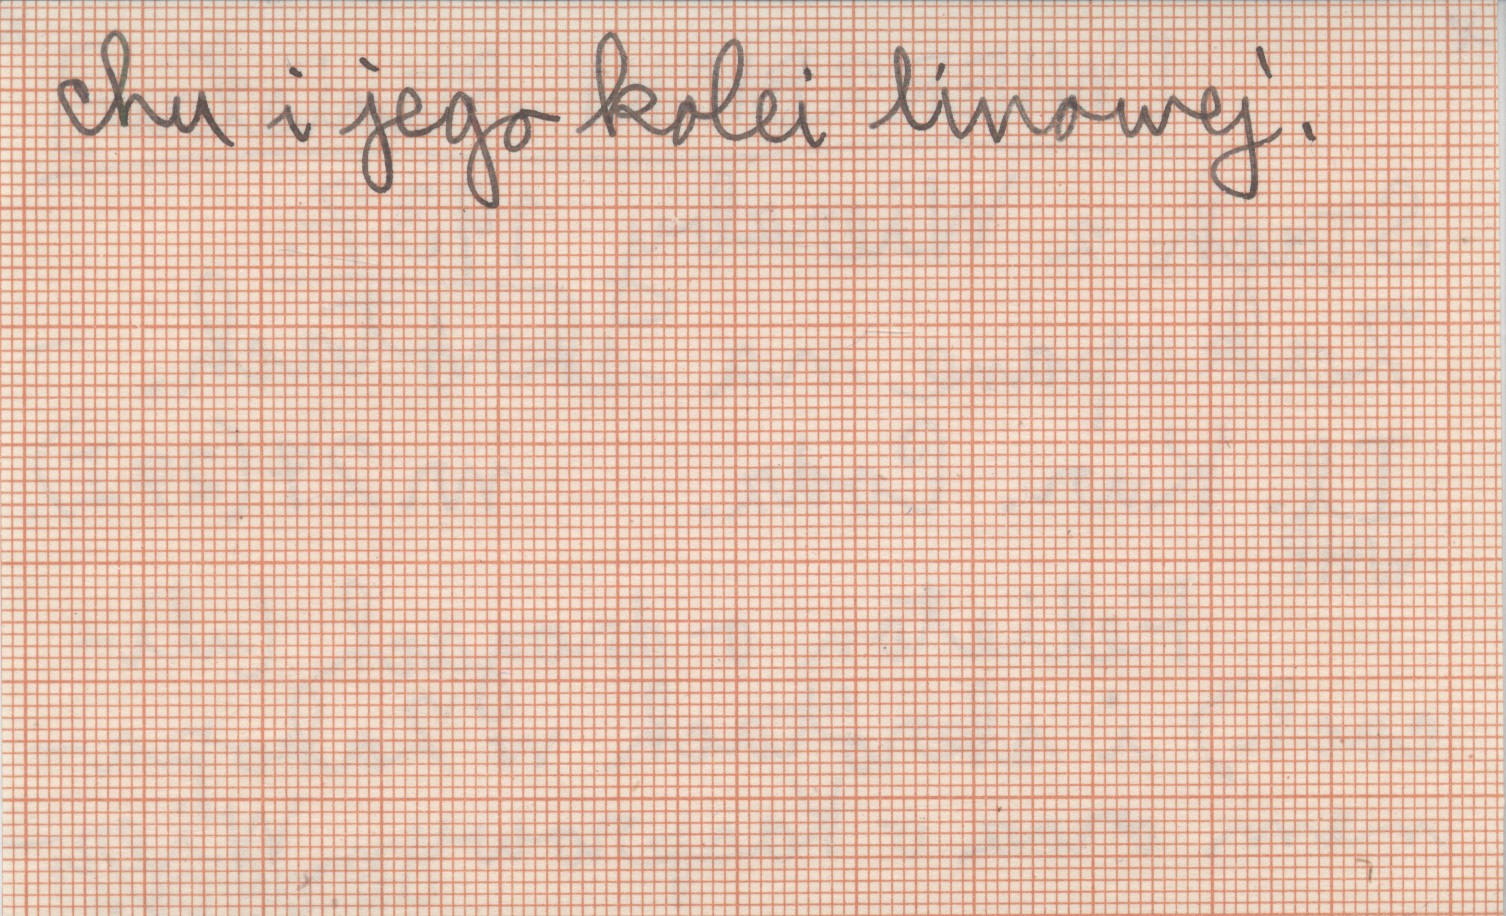 chu i jego kolei linowej.